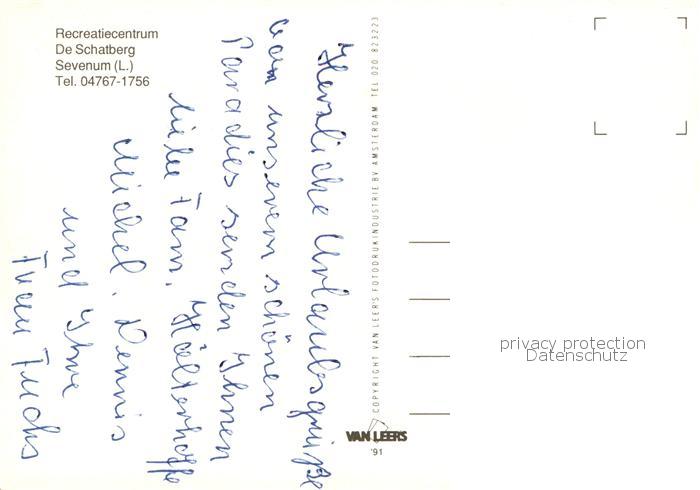 Recreatiecentrum
De Schatberg
Sevenum (L.)
Tel. 04767-1756
Herzliche Urlaubsgrüße
aus unserem schönen
Paradies senden Ihnen
liebe Fam.
Michel, Dennis
und Ihre
Frau Fuchs
COPYRIGHT VAN LEER'S FOTODRUKINDUSTRIE BV AMSTERDAM TEL 020 823223
VAN LEERS
'91
privacy protection
Datenschutz